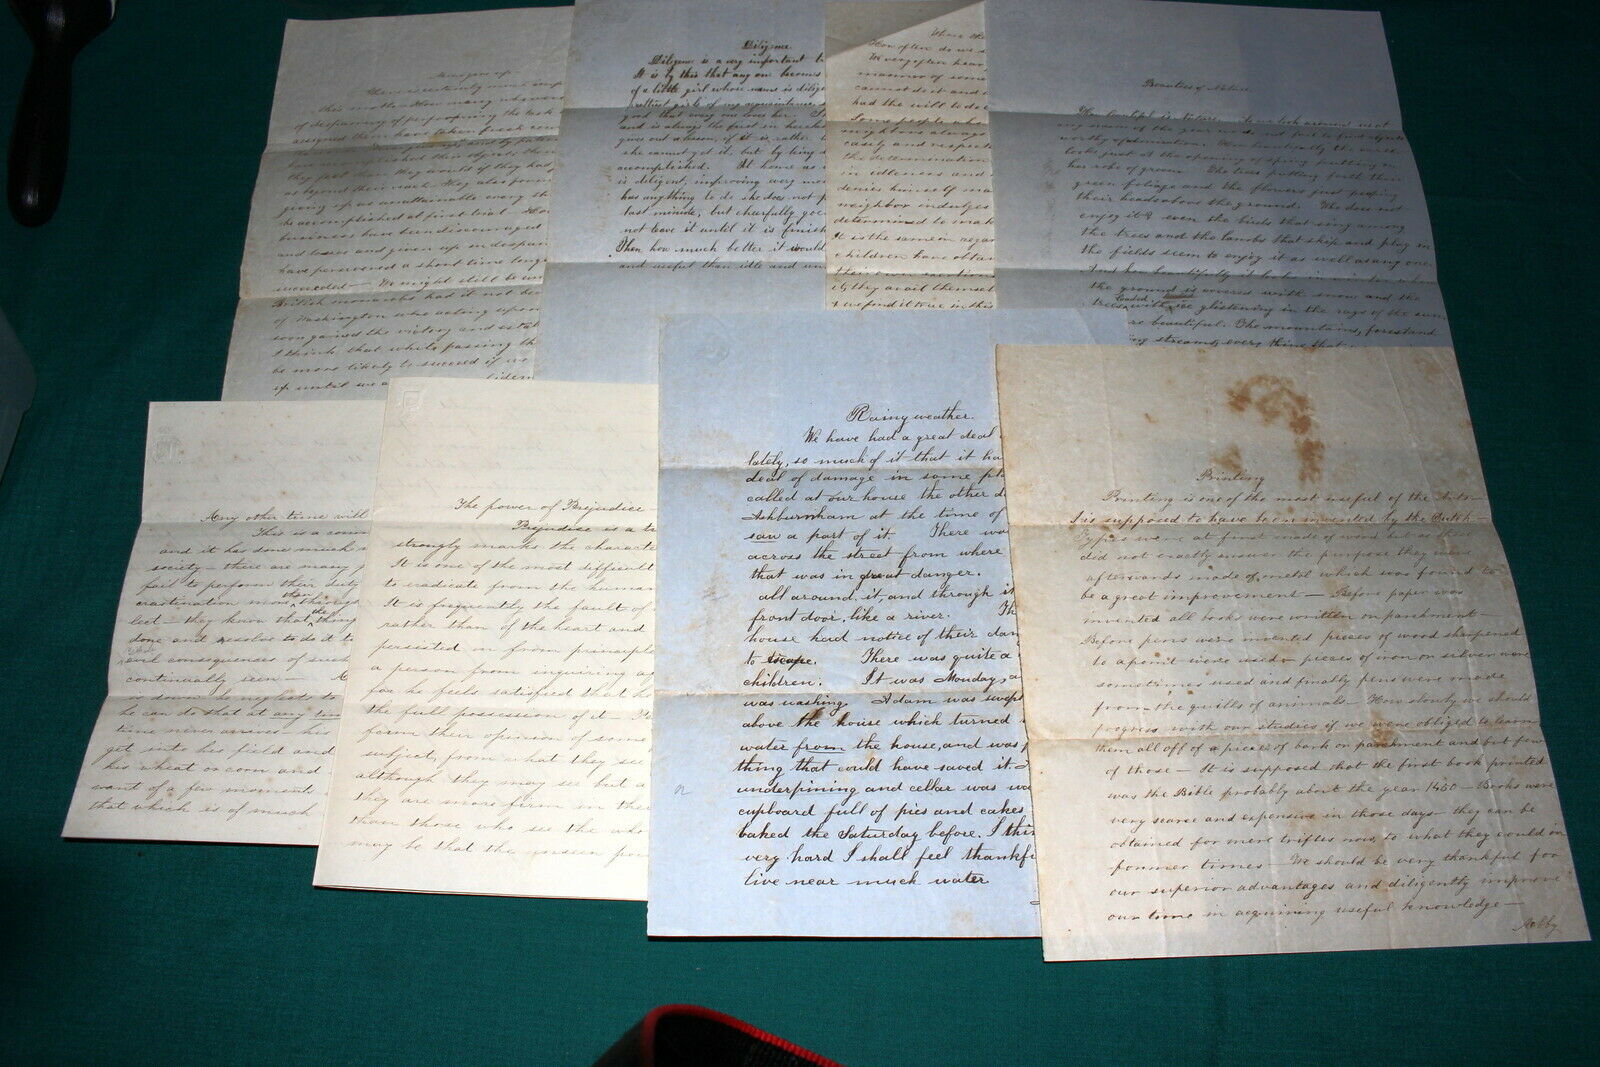 Never give up.
There is certainly more
this motto. How many
of despairing of performing the task
assigned them have taken fresh
accomplished their object
they feel have they would if they had
as beyond their reach. They also
giving up as unattainable every
be accomplished at first trial
business have been discouraged
and losses and given up in despair
have persevered a short time longer
succeeded — We might still be under
British monarchs had it not been
of Washington who acting upon
soon gained the victory and
I think that while passing th
be more likely to succeed if we
up until we
Diligence.
Diligence is a very important t
It is by this that any one becomes
of a little girl whose name is dilige
prettiest girls of my acquaintance
good that every one loves her.
and is always the first in her class
gives out a lesson, if it is rather
she cannot get it, but by being d
accomplished. At home as
is diligent, improving every mom
has anything to do she does not p
last minute, but cheerfully goe
not leave it until it is finish
Then how much better it would
and useful than idle and un
Where the
How often do we
We very often hear
manner of some
cannot do it and
had the will to do
Some people who
neighbors always
easily and respect
the determination
in idleness and
denies himself ma
neighbor indulges
determined to mak
It is the same in regar
children have obtai
their own exertion
ify they avail themsel
we find it true in this
Beauties of Nature.
How beautiful is Nature. As we look around us at
any season of the year we do not fail to find objects
worthy of admiration. How beautifully the earth
looks just at the opening of spring putting on
her robe of green. The trees putting forth their
green foliage and the flowers just peeping
their heads above the ground. Who does not
enjoy it? even the birds that sing among
the trees and the lambs that skip and play in
the fields seem to enjoy it as well as any one.
And how beautifully it looks in winter when
the ground is covered with snow and the
trees loaded with ice glistening in the rays of the sun
are beautiful. The mountains, forests and
streams, every thing that
Any other time will
This is a comm
and it has done much
society — there are many
fail to perform their duty
crastination more than
lect — they know that the thing
done and resolve to do it
evil consequences of such
continually seen —
he can do that at any time
time never arrives — his
get into his field and
his wheat or corn and
want of a few moments
that which is of much
The power of Prejudice
Prejudice is a tr
strongly marks the characte
It is one of the most difficult
to eradicate from the human
It is frequently the fault of
rather than of the heart and
persisted in from principle
a person from inquiring
for he feels satisfied that he
the full possession of it —
form their opinion of some
subject, from what they see
although they may see but a
they are more firm in their
than those who see the who
may be that the unseen por
Rainy weather.
We have had a great deal
lately, so much of it that it ha
deal of damage in some pla
called at our house the other d
Ashburnham at the time of
saw a part of it. There wa
across the street from where
that was in great danger.
all around, it, and through it
front door, like a river. Th
house had notice of their dan
to escape. There was quite a
children. It was Monday, a
was washing. A dam was swept
above the house which turned
water from the house, and was
thing that could have saved it.
underpining and cellar was wa
cupboard full of pies and cakes
baked the Saturday before. I thin
very hard I shall feel thankf
live near much water
Printing
Printing is one of the most useful of the Arts —
It is supposed to have been invented by the Dutch —
Types were at first made of wood but as these
did not exactly answer the purpose they were
afterwards made of metal which was found to
be a great improvement — Before paper was
invented all books were written on parchment —
Before pens were invented pieces of wood sharpened
to a point were used — pieces of iron or silver were
sometimes used and finally pens were made
from the quills of animals — How slowly we should
progress with our studies if we were obliged to learn
them all off of a piece of bark or parchment and but few
of those — It is supposed that the first book printed
was the Bible probably about the year 1450 — Books were
very scarce and expensive in those days — they can be
obtained for mere trifles now to what they could in
former times — We should be very thankful for
our superior advantages and diligently improve
our time in acquiring useful knowledge —
Abby